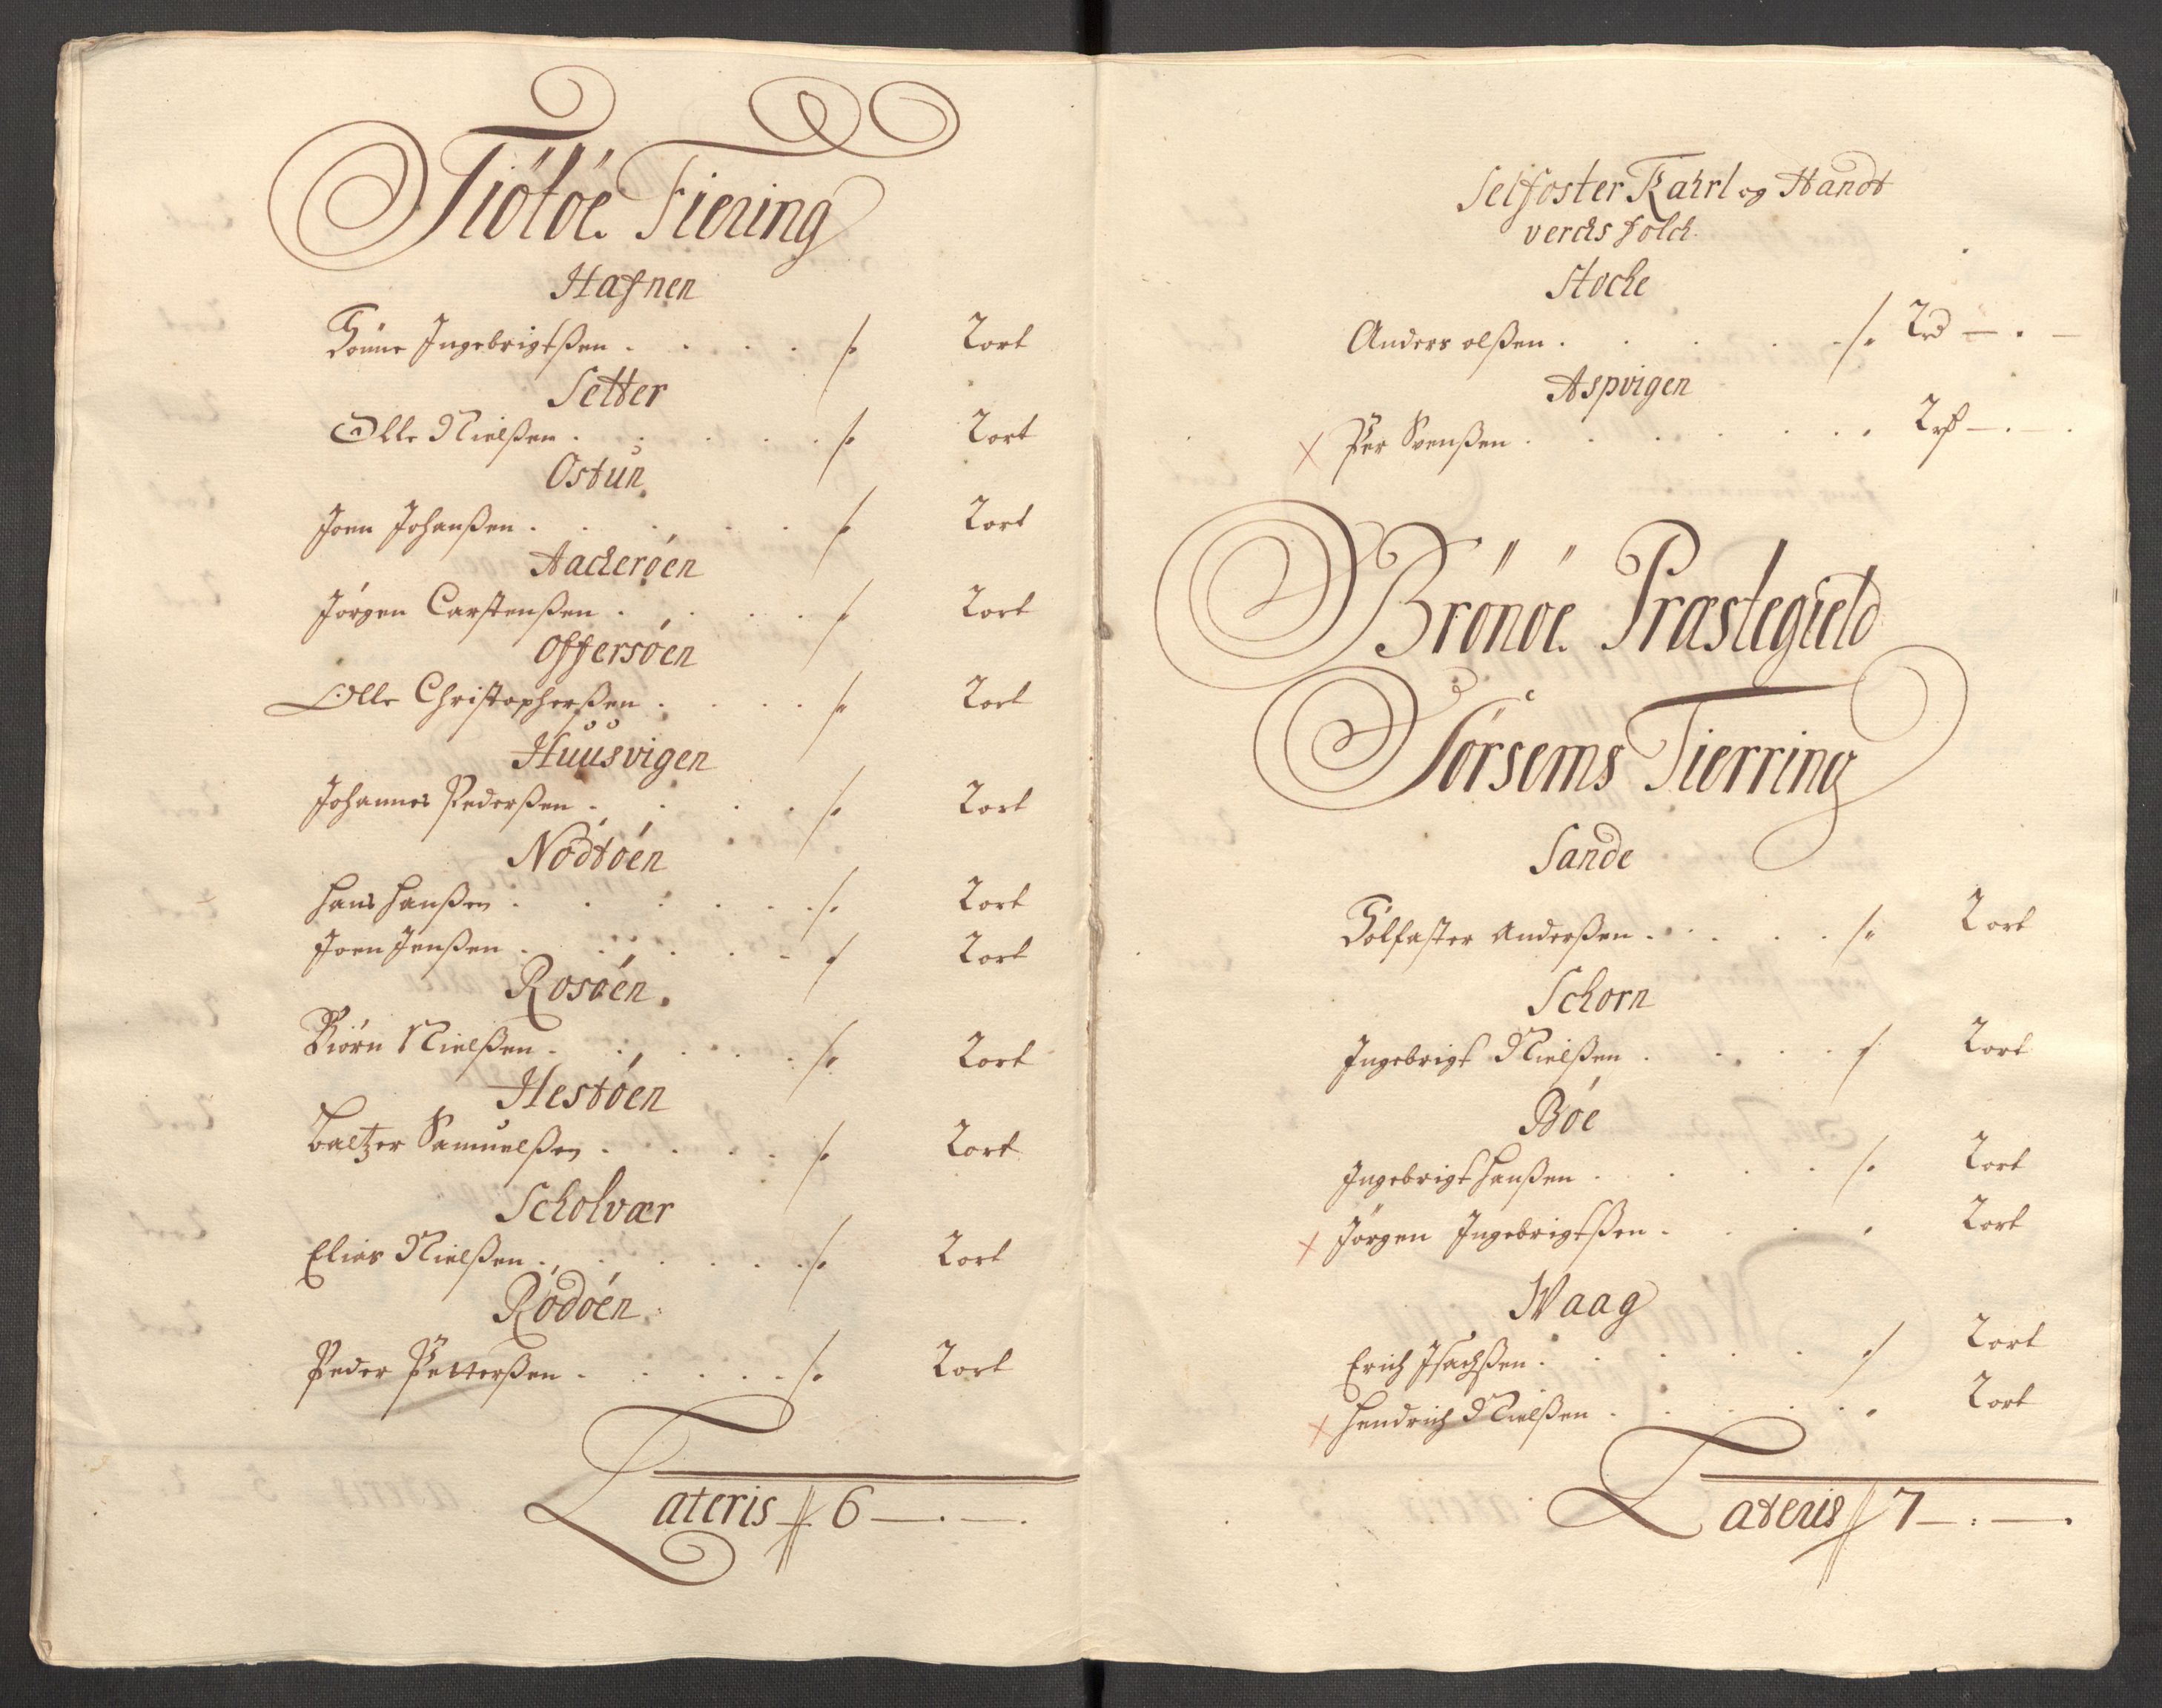 Tiötöe Fiering
Hafnen
Tönne Ingebrigtßen . . . . 2 ort
Setter
Olle Nielßen . . . . 2 ort
Ostun
Joen Johanßen . . . . 2 ort
Aacheröen
Jörgen Carstenßen . . . . 2 ort
Offersöen
Olle Christopherßen . . . . 2 ort
Huusvigen
Johannes Pederßen . . . . 2 ort
Nödtöen
Hans Hanßen . . . . 2 ort
Joen Jenßen . . . . 2 ort
Rosöen
Biörn Nielßen . . . . 2 ort
Hestöen
Baltzer Samuelßen . . . . 2 ort
Scholvær
Elias Nielßen . . . . 2 ort
Rödöen
Peder Petterßen . . . . 2 ort
Lateris 6 — . —
Selfoster Karl og Handt
verchs folch
Stoche
Anders olßen . . . . 2 rd — . —
Aspvigen
× Per Svenßen . . . . 2 rd — . —
Brönöe Præstegield
Sörsems Fierring
Sande
Tolfaster Anderßen . . . . 2 ort
Schorn
Ingebrigt Nielßen . . . . 2 ort
Böe
Ingebrigt Hanßen . . . . 2 ort
× Jörgen Ingebrigtßen . . . . 2 ort
Waag
Erich Isachßen . . . . 2 ort
× Hendrich Nielßen . . . . 2 ort
Lateris 7 — . —